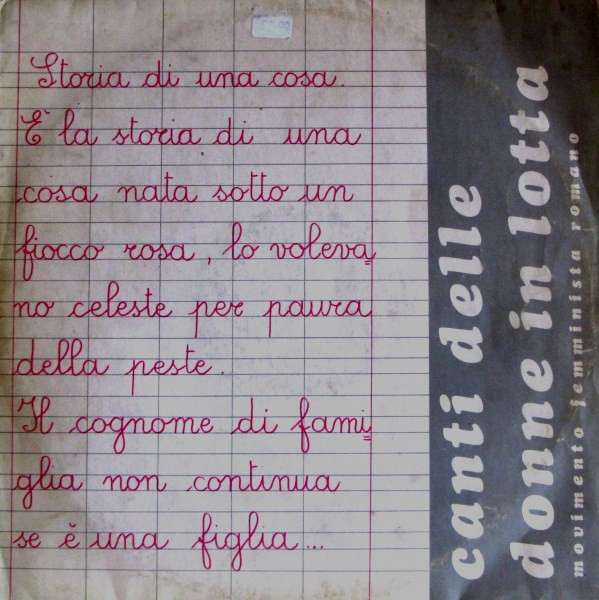 Storia di una cosa.
E' la storia di una
cosa nata sotto un
fiocco rosa, lo voleva=
no celeste per paura
della peste.
Il cognome di fami=
glia non continua
se è una figlia...
canti delle
donne in lotta
movimento femminista romano